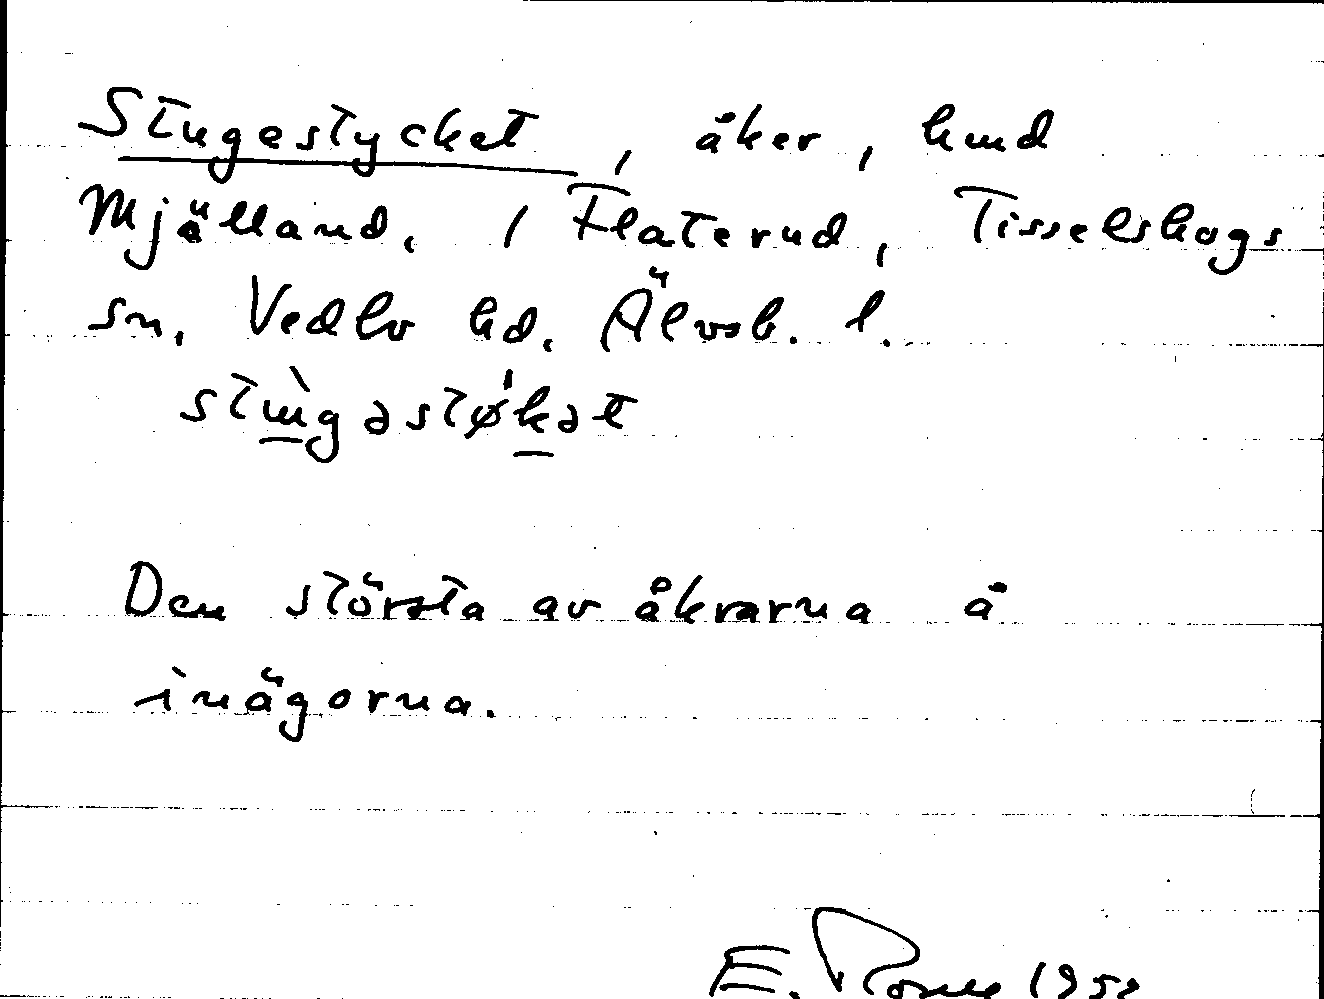 Stugestycket, åker, hmd
Mjälland, 1 Flaterud, Tisselskogs
sn. Vedbo hd. Älvsb. l.
stùgəstø'kət
Den största av åkrarna å
inägorna.
E. 195